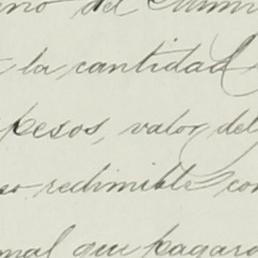 del
la cantidad
pesos, valor del
redimible con
que pagaro